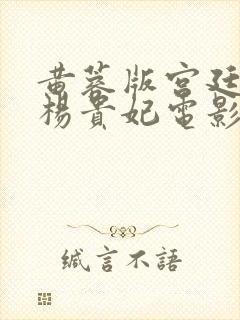 黄蓉版宫廷
杨贵妃電影
缄言不語